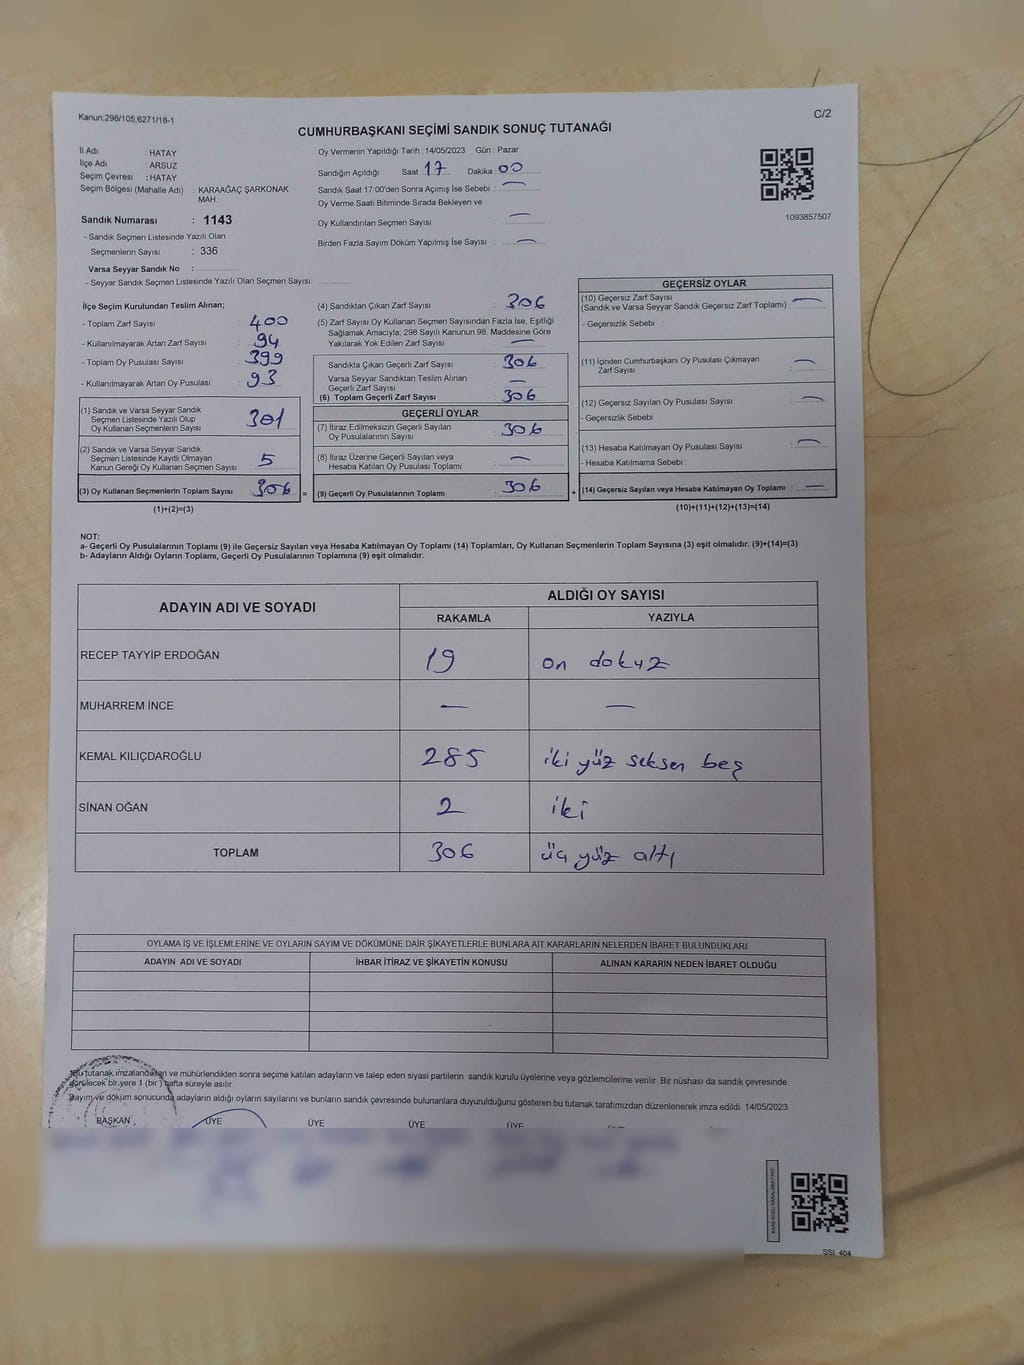 Kanun:298/105,6271/16-1
C/2
CUMHURBAŞKANI SEÇİMİ SANDIK SONUÇ TUTANAĞI
İl Adı : HATAY
İlçe Adı : ARSUZ
Seçim Çevresi : HATAY
Seçim Bölgesi (Mahalle Adı) : KARAAĞAÇ ŞARKONAK
MAH.
Sandık Numarası : 1143
- Sandık Seçmen Listesinde Yazılı Olan
Seçmenlerin Sayısı : 336
Varsa Seyyar Sandık No :
- Seyyar Sandık Seçmen Listesinde Yazılı Olan Seçmen Sayısı:
Oy Vermenin Yapıldığı Tarih :14/05/2023 Gün : Pazar
Sandığın Açıldığı Saat 17 Dakika 00
Sandık Saat 17:00'den Sonra Açımış İse Sebebi : —
Oy Verme Saati Bitiminde Sırada Bekleyen ve
Oy Kullandırılan Seçmen Sayısı : —
Birden Fazla Sayım Döküm Yapılmış İse Sayısı : —
1093857507
İlçe Seçim Kurulundan Teslim Alınan;
- Toplam Zarf Sayısı : 400
- Kullanılmayarak Artan Zarf Sayısı : 94
- Toplam Oy Pusulası Sayısı : 399
- Kullanılmayarak Artan Oy Pusulası : 93
(1) Sandık ve Varsa Seyyar Sandık
Seçmen Listesinde Yazılı Olup
Oy Kullanan Seçmenlerin Sayısı : 301
(2) Sandık ve Varsa Seyyar Sandık
Seçmen Listesinde Kayıtlı Olmayan
Kanun Gereği Oy Kullanan Seçmen Sayısı : 5
(3) Oy Kullanan Seçmenlerin Toplam Sayısı : 306
(1)+(2)=(3)
=
(4) Sandıktan Çıkan Zarf Sayısı : 306
(5) Zarf Sayısı Oy Kullanan Seçmen Sayısından Fazla İse, Eşitliği
Sağlamak Amacıyla; 298 Sayılı Kanunun 98. Maddesine Göre
Yakılarak Yok Edilen Zarf Sayısı : —
Sandıkta Çıkan Geçerli Zarf Sayısı : 306
Varsa Seyyar Sandıktan Teslim Alınan
Geçerli Zarf Sayısı : —
(6) Toplam Geçerli Zarf Sayısı : 306
GEÇERLİ OYLAR
(7) İtiraz Edilmeksizin Geçerli Sayılan
Oy Pusulalarının Sayısı : 306
(8) İtiraz Üzerine Geçerli Sayılan veya
Hesaba Katılan Oy Pusulası Toplamı : —
(9) Geçerli Oy Pusulalarının Toplamı : 306
+
GEÇERSİZ OYLAR
(10) Geçersiz Zarf Sayısı : —
(Sandık ve Varsa Seyyar Sandık Geçersiz Zarf Toplamı)
- Geçersizlik Sebebi :
(11) İçinden Cumhurbaşkanı Oy Pusulası Çıkmayan
Zarf Sayısı : —
(12) Geçersiz Sayılan Oy Pusulası Sayısı : —
- Geçersizlik Sebebi :
(13) Hesaba Katılmayan Oy Pusulası Sayısı : —
- Hesaba Katılmama Sebebi :
(14) Geçersiz Sayılan veya Hesaba Katılmayan Oy Toplamı : —
(10)+(11)+(12)+(13)=(14)
NOT:
a- Geçerli Oy Pusulalarının Toplamı (9) ile Geçersiz Sayılan veya Hesaba Katılmayan Oy Toplamı (14) Toplamları, Oy Kullanan Seçmenlerin Toplam Sayısına (3) eşit olmalıdır. (9)+(14)=(3)
b- Adayların Aldığı Oyların Toplamı, Geçerli Oy Pusulalarının Toplamına (9) eşit olmalıdır.
ADAYIN ADI VE SOYADI
ALDIĞI OY SAYISI
RAKAMLA YAZIYLA
RECEP TAYYİP ERDOĞAN 19 on dokuz
MUHARREM İNCE — —
KEMAL KILIÇDAROĞLU 285 iki yüz seksen beş
SİNAN OĞAN 2 iki
TOPLAM 306 üç yüz altı
OYLAMA İŞ VE İŞLEMLERİNE VE OYLARIN SAYIM VE DÖKÜMÜNE DAİR ŞİKAYETLERLE BUNLARA AİT KARARLARIN NELERDEN İBARET BULUNDUKLARI
ADAYIN ADI VE SOYADI İHBAR İTİRAZ VE ŞİKAYETİN KONUSU ALINAN KARARIN NEDEN İBARET OLDUĞU
Bu tutanak imzalandıktan ve mühürlendikten sonra seçime katılan adayların ve talep eden siyasi partilerin sandık kurulu üyelerine veya gözlemcilerine verilir. Bir nüshası da sandık çevresinde
görülecek bir yere 1 (bir) hafta süreyle asılır.
Sayım ve döküm sonucunda adayların aldığı oyların sayılarını ve bunların sandık çevresinde bulunanlara duyurulduğunu gösteren bu tutanak tarafımızdan düzenlenerek imza edildi. 14/05/2023
BAŞKAN ÜYE ÜYE ÜYE ÜYE
SSİ_404